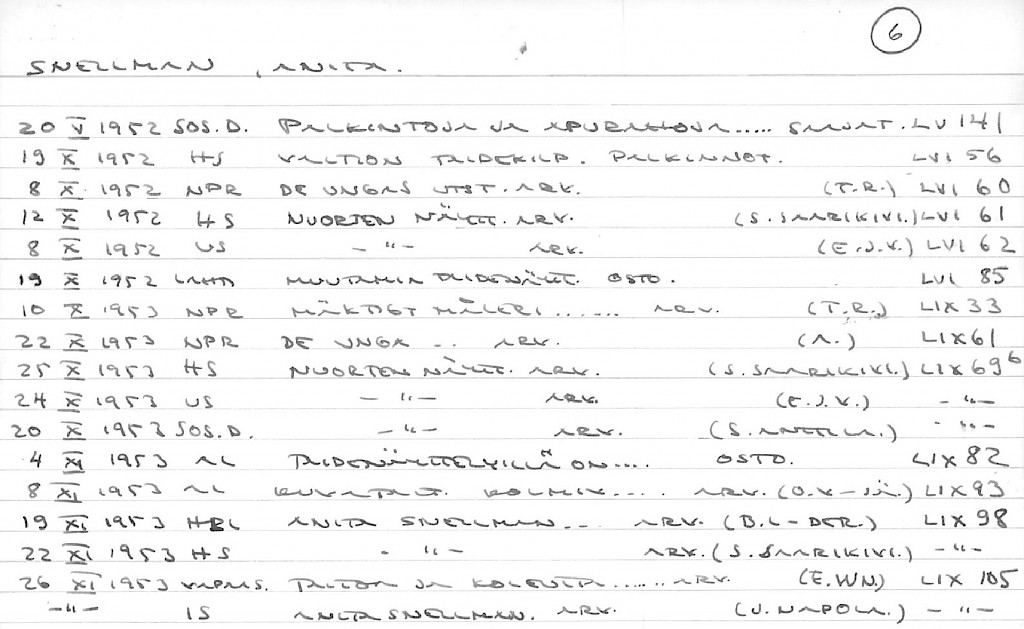 6
SNELLMAN, ANITA.
20 V 1952 SOS.D. PALKINTOJA JA APURAHOJA..... SAAJAT. LV 141
19 X 1952 HS VALTION TAIDEKILP. PALKINNOT. LVI 56
8 X 1952 NPR DE UNGAS UTST. ARV. (T.R.) LVI 60
12 X 1952 HS NUORTEN NÄYTT. ARV. (S. SAARIKIVI.) LVI 61
8 X 1952 US - " - ARV. (E.J.V.) LVI 62
19 X 1952 LAHTI MUUTAMIA TAIDENÄYTT. OSTO. LVI 85
10 X 1953 NPR MÄKTIGT MÅLERI ...... ARV. (T.R.) LIX 33
22 X 1953 NPR DE UNGA .. ARV. (A.) LIX 61
25 X 1953 HS NUORTEN NÄYTT. ARV. (S. SAARIKIVI.) LIX 69 6
24 X 1953 US - " - ARV. (E.J.V.) - " -
20 X 1953 SOS.D. - " - ARV. (S. ANTILA.) - " -
4 XI 1953 AL TAIDENÄYTTELYILLÄ ON.... OSTO. LIX 82
8 XI 1953 AL KUVATAIT. KOLMIK.... ARV. (O.V-JÄ.) LIX 93
19 XI 1953 HBL ANITA SNELLMAN... ARV. (B.L-DER.) LIX 98
22 XI 1953 HS - " - ARV. (S. SAARIKIVI.) - " -
26 XI 1953 VAPAUS. TAITOA JA KOKEVIA ...... ARV. (E.WN.) LIX 105
- " - IS ANITA SNELLMAN. ARV. (U. NAPOLA.) - " -